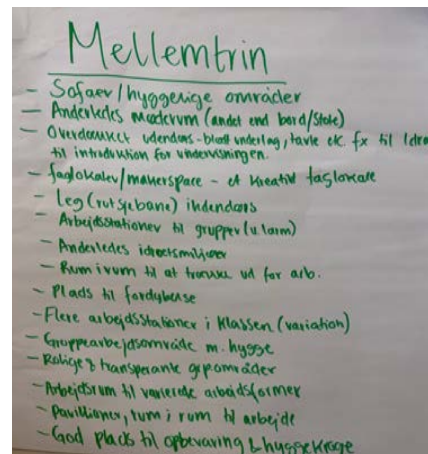 Mellemtrin
- Sofaer/hyggelige områder
- Anderledes møderum (andet end bord/stole)
- Overdækket udendørs - blødt underlag, tavle etc. fx til Idræt
til introduktion for undervisningen.
- faglokaler/makerspace - et kreativt faglokale
- Leg (rutsjebane) indendørs
- Arbejdsstationer til grupper (u. larm)
- Anderledes idrætsmiljøer
- Rum i rum til at trække ud for arb.
- Plads til fordybelse
- Flere arbejdsstationer i klassen (variation)
- Gruppearbejdsområde m. hygge
- Rolige & transparante grp områder
- Arbejdsrum til varierede arbejdsformer
- Pavillioner, rum i rum til arbejde
- God plads til opbevaring & hyggekroge